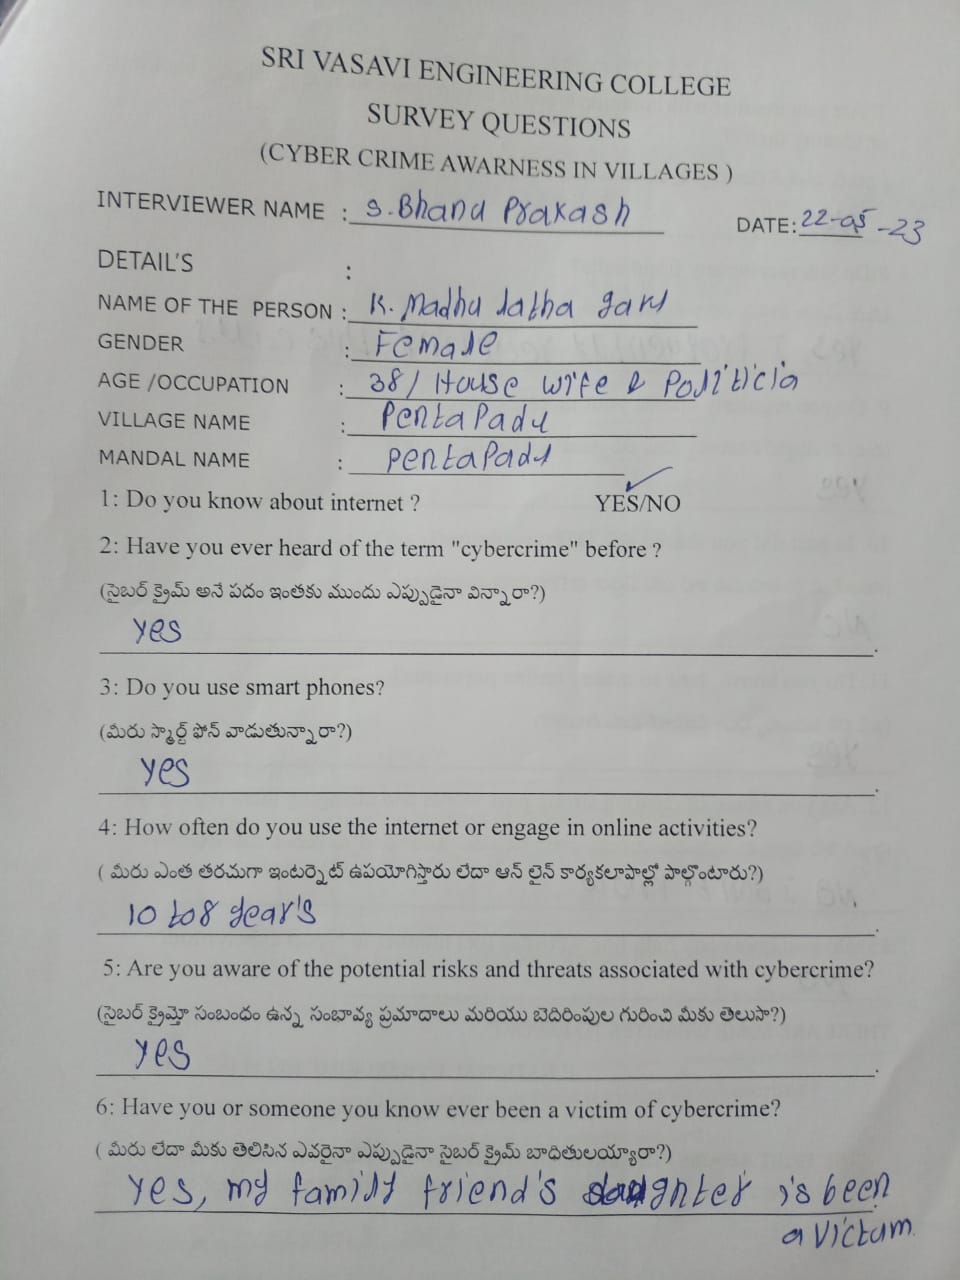 SRI VASAVI ENGINEERING COLLEGE
SURVEY QUESTIONS
(CYBER CRIME AWARNESS IN VILLAGES )
INTERVIEWER NAME : S.Bhanu Prakash DATE: 22-05-23
DETAIL'S :
NAME OF THE PERSON : K. Madhu latha garu
GENDER : Female
AGE /OCCUPATION : 38/ House wife & Politicia
VILLAGE NAME : Pentapadu
MANDAL NAME : pentapadu
1: Do you know about internet ? YES/NO
2: Have you ever heard of the term "cybercrime" before ?
(సైబర్ క్రైమ్ అనే పదం ఇంతకు ముందు ఎప్పుడైనా విన్నారా?)
yes
3: Do you use smart phones?
(మీరు స్మార్ట్ ఫోన్ వాడుతున్నారా?)
yes
4: How often do you use the internet or engage in online activities?
( మీరు ఎంత తరచుగా ఇంటర్నెట్ ఉపయోగిస్తారు లేదా ఆన్ లైన్ కార్యకలాపాల్లో పాల్గొంటారు?)
10 to8 year's
5: Are you aware of the potential risks and threats associated with cybercrime?
(సైబర్ క్రైమ్తో సంబంధం ఉన్న సంభావ్య ప్రమాదాలు మరియు బెదిరింపుల గురించి మీకు తెలుసా?)
yes
6: Have you or someone you know ever been a victim of cybercrime?
( మీరు లేదా మీకు తెలిసిన ఎవరైనా ఎప్పుడైనా సైబర్ క్రైమ్ బాధితులయ్యారా?)
yes, my family friend's daughter is been
a victum